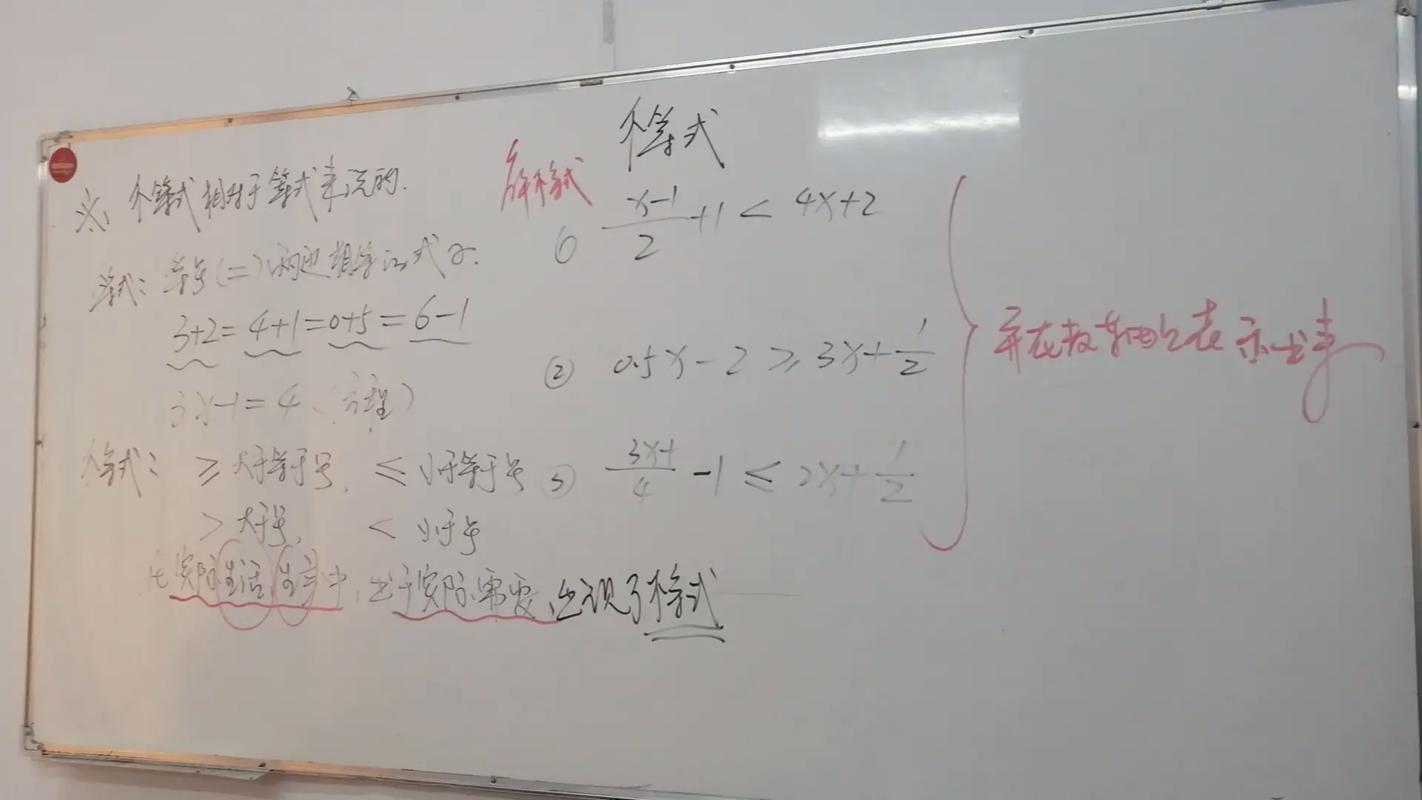 不等式
※ 不等式相对于等式来说的.
等式: 等号(=)两边相等的式子.
3+2=4+1=0+5=6-1
3x-1=4 (方程)
不等式: ≥ 大于等于号, ≤ 小于等于号
> 大于号, < 小于号
在实际生活、生产中, 出于实际需要, 出现了不等式
解不等式
① \frac{x-1}{2}+1 < 4x+2
② 0.5x-2 ≥ 3x+\frac{1}{2}
③ \frac{3x-1}{4}-1 ≤ 2x+\frac{1}{2}
并在数轴上表示出来